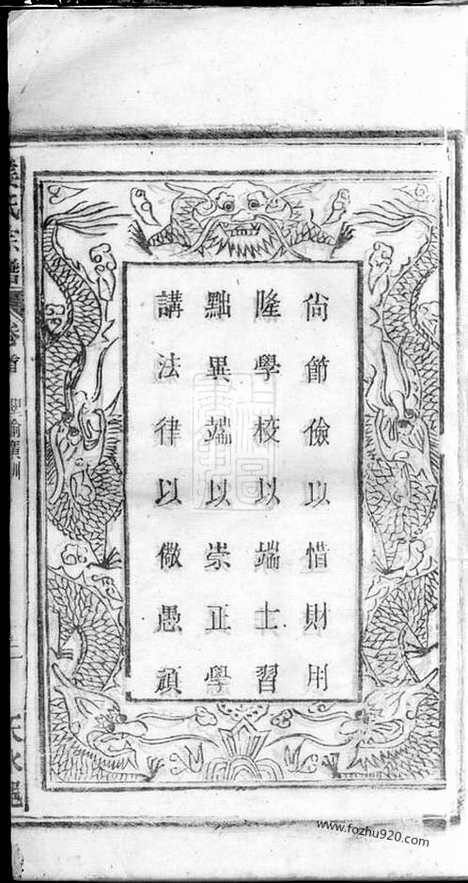 尙節儉以惜財用
隆學校以端士習
黜異端以崇正學
講法律以儆愚頑
氏宗譜
卷首
聖諭廣訓
www.fozhu920.com